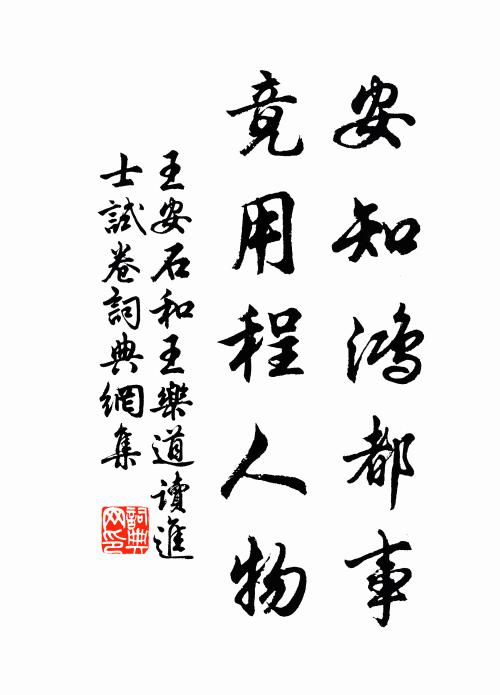 安知鴻都事
竟用程人物
王安石和王樂道讀進
士試卷詞典網集
詞典
网印